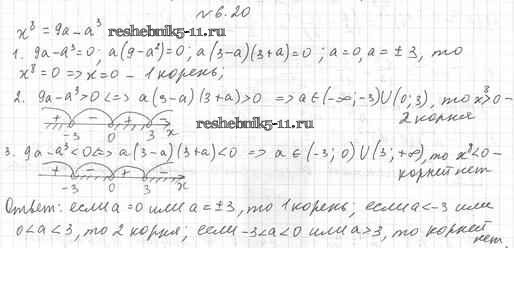 №6.20
x⁸ = 9a - a³
reshebnik5-11.ru
1. 9a - a³ = 0; a(9 - a²) = 0; a(3 - a)(3 + a) = 0; a = 0, a = ±3, то
x⁸ = 0 => x = 0 - 1 корень;
2. 9a - a³ > 0 <=> a(3 - a)(3 + a) > 0 => a ∈ (-∞; -3) ∪ (0; 3), то x⁸ > 0 -
2 корня
+ - + -
-3 0 3 x
reshebnik5-11.ru
3. 9a - a³ < 0 <=> a(3 - a)(3 + a) < 0 => a ∈ (-3; 0) ∪ (3; +∞), то x⁸ < 0 -
корней нет
+ - + -
-3 0 3 x
Ответ: если a = 0 или a = ±3, то 1 корень; если a < -3 или
0 < a < 3, то 2 корня; если -3 < a < 0 или a > 3, то корней
нет.